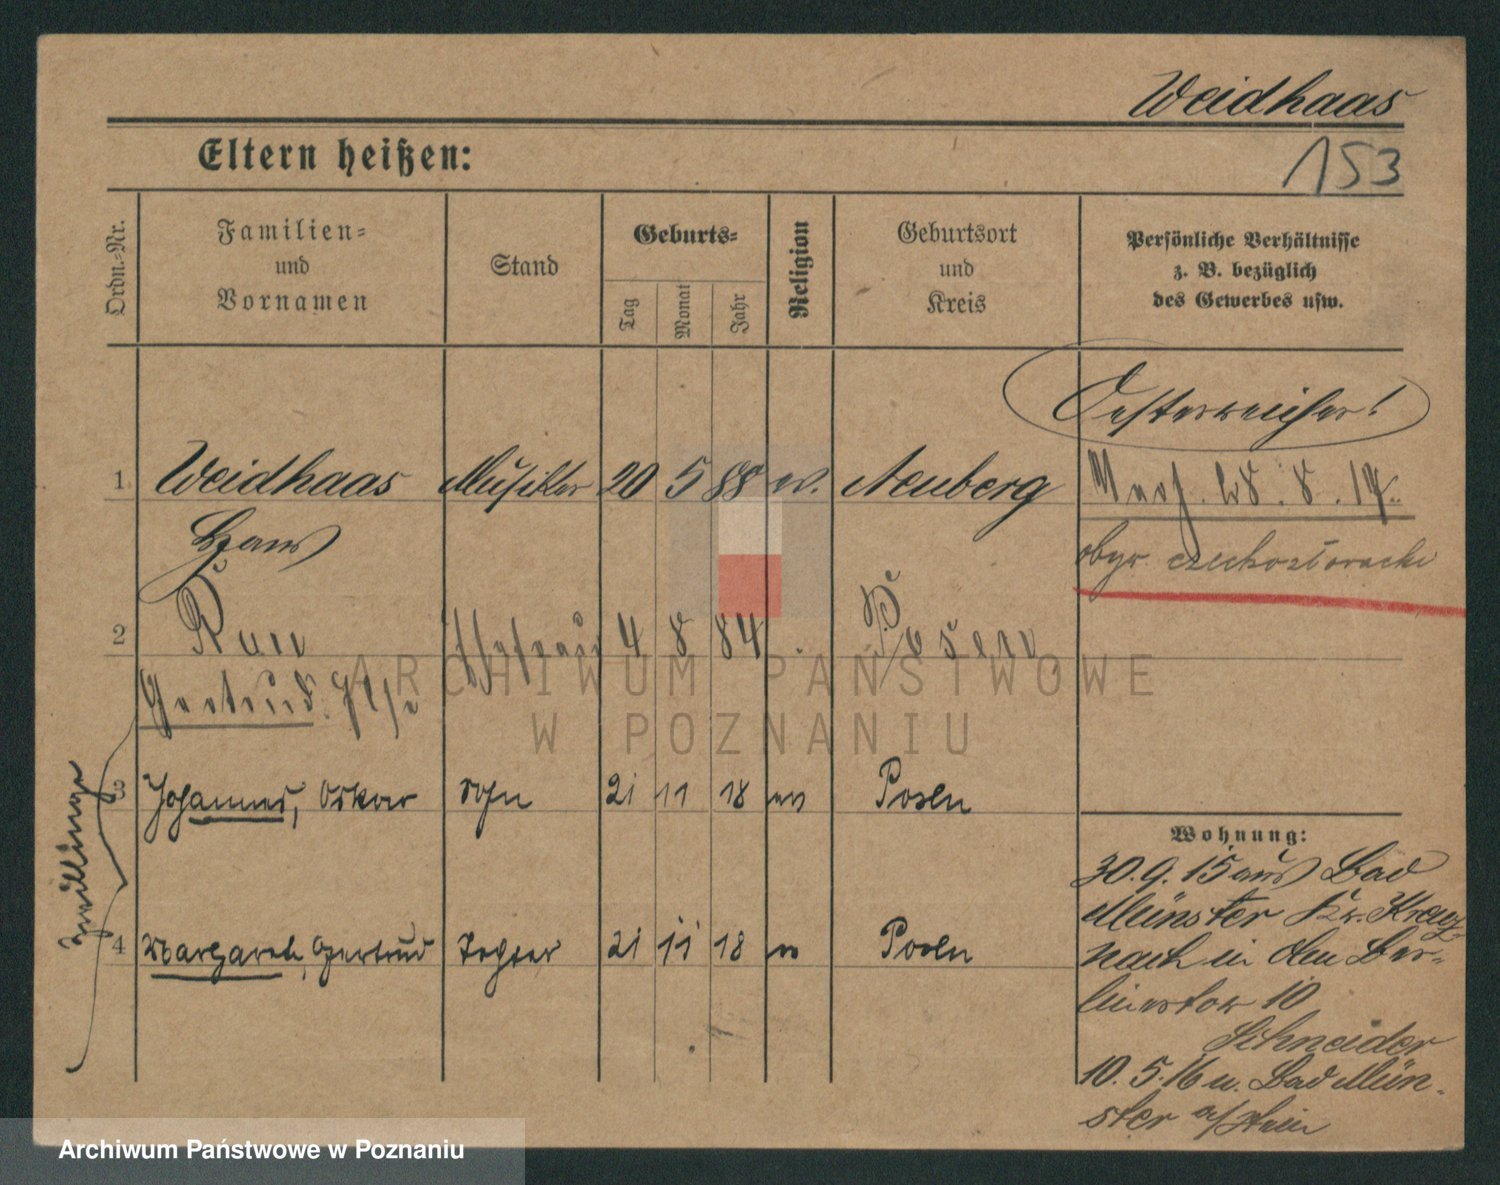 Weidhaas
153
Eltern heißen:
Ordn.-Nr.
Familien-
und
Vornamen
Stand
Geburts-
Tag
Monat
Jahr
Religion
Geburtsort
und
Kreis
Persönliche Verhältnisse
z. B. bezüglich
des Gewerbes usw.
Oesterreicher!
1 Weidhaas Musiker 20 5 88 ev. Neuberg
Hans
28. 8. 17.
obyw. czechosłowacki
2 4 8 84 Posen
Gertrud. Else
Zwillinge
3 Johannes, Oskar Sohn 21 11 18 ev Posen
4 Margarete, Gertrud Tochter 21 11 18 ev Posen
Wohnung:
30. 9. 15 aus Bad
Münster Kr. Kreuz-
nach in den Ber-
linertor 10
Schneider
10. 5. 16 n. Bad Mün-
ster a/Stein
ARCHIWUM PAŃSTWOWE
W POZNANIU
Archiwum Państwowe w Poznaniu